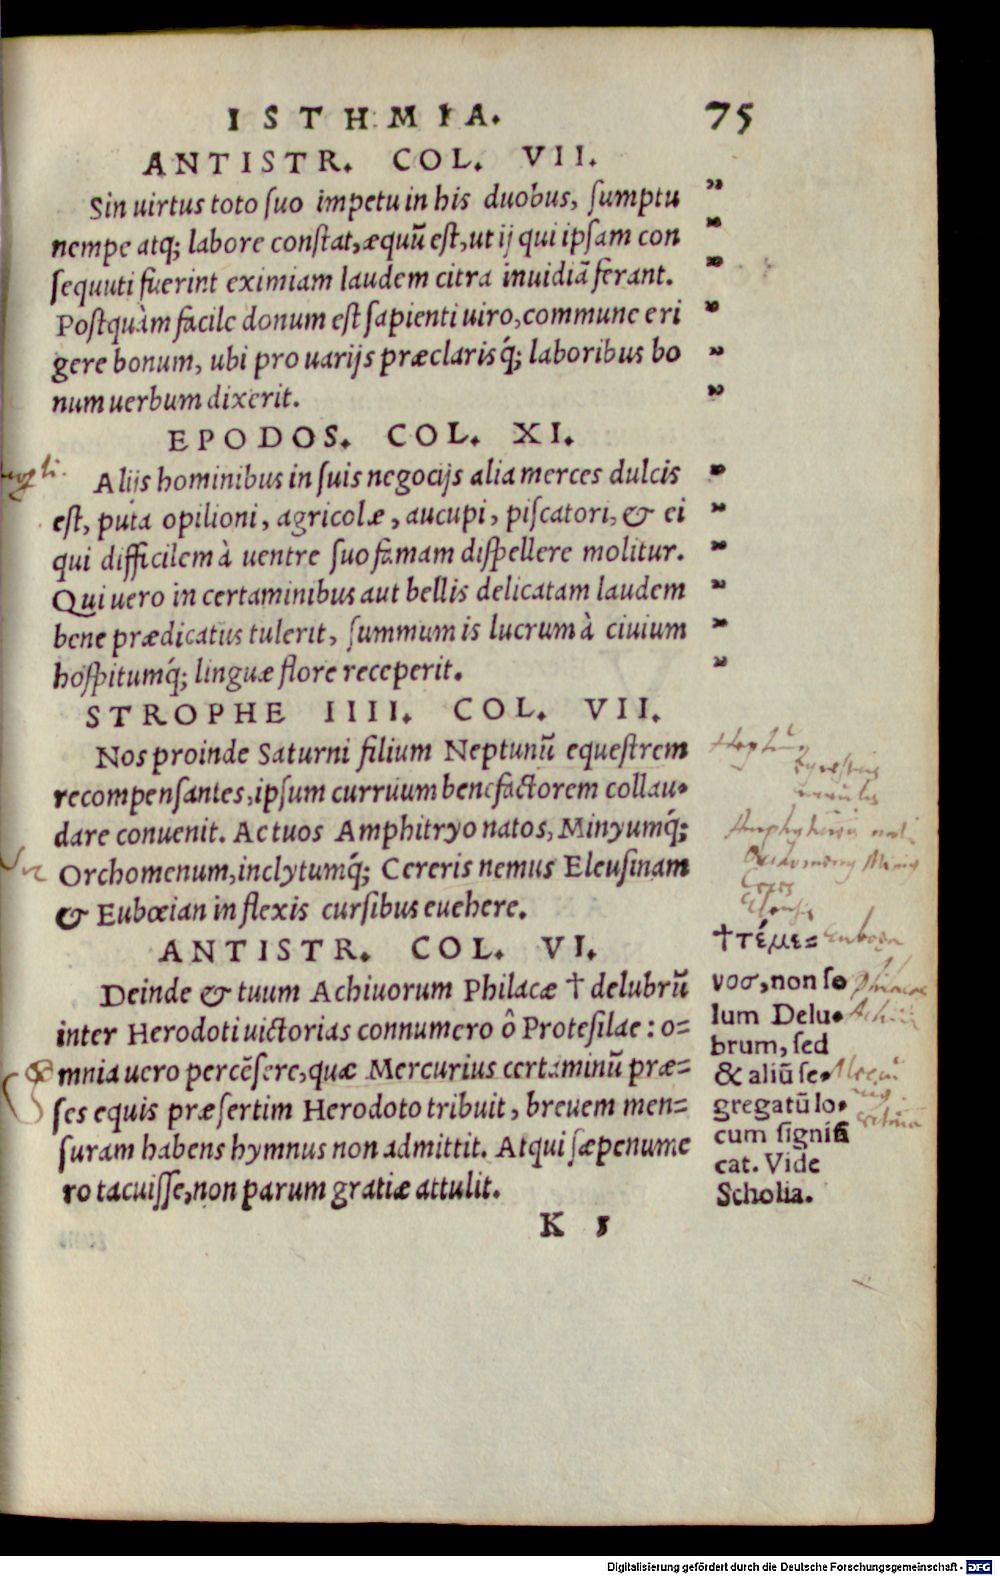 ISTHMIA. 75
ANTISTR. COL. VII.
Sin uirtus toto suo impetu in his duobus, sumptu „
nempe atq; labore constat, æquũ est, ut ij qui ipsam con „
sequuti fuerint eximiam laudem citra inuidiã ferant. „
Postquàm facile donum est sapienti uiro, commune eri „
gere bonum, ubi pro uarijs præclarisq́; laboribus bo „
num uerbum dixerit. „
EPODOS. COL. XI.
Alijs hominibus in suis negocijs alia merces dulcis „
est, puta opilioni, agricolæ, aucupi, piscatori, & ei „
qui difficilem à uentre suo famam dispellere molitur. „
Qui uero in certaminibus aut bellis delicatam laudem „
bene prædicatus tulerit, summum is lucrum à ciuium „
hospitumq́; linguæ flore receperit. „
STROPHE IIII. COL. VII.
Nos proinde Saturni filium Neptunũ equestrem
recompensantes, ipsum curruum benefactorem collau-
dare conuenit. Ac tuos Amphitryo natos, Minyumq́;
Orchomenum, inclytumq́; Cereris nemus Eleusinam
& Eubœian in flexis cursibus euehere.
ANTISTR. COL. VI.
Deinde & tuum Achiuorum Philacæ † delubrũ
inter Herodoti uictorias connumero ô Protesilae: o=
mnia uero percẽsere, quæ Mercurius certaminũ præ=
ses equis præsertim Herodoto tribuit, breuem men=
suram habens hymnus non admittit. Atqui sæpenume
ro tacuisse, non parum gratiæ attulit.
K 5
†τέμε=
νοσ, non so
lum Delu-
brum, sed
& aliũ se-
gregatũ lo-
cum signifi
cat. Vide
Scholia.
Ceres
Digitalisierung gefördert durch die Deutsche Forschungsgemeinschaft - DFG